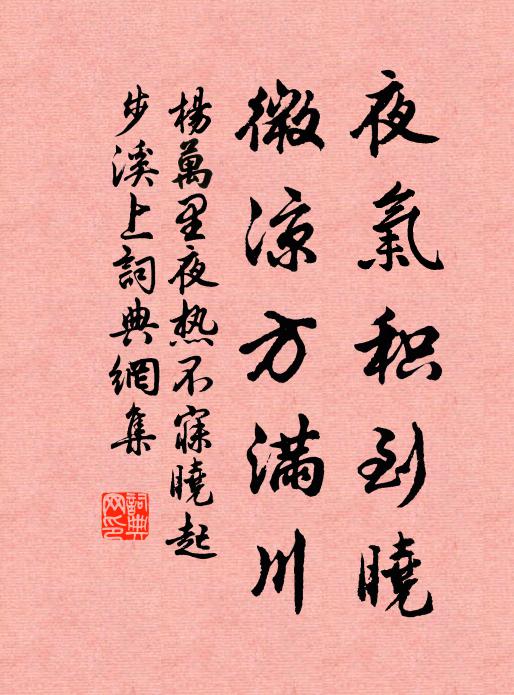 夜氣积到曉
微凉方滿川
楊萬里夜热不寐曉起
步溪上詞典網集
詞典網印